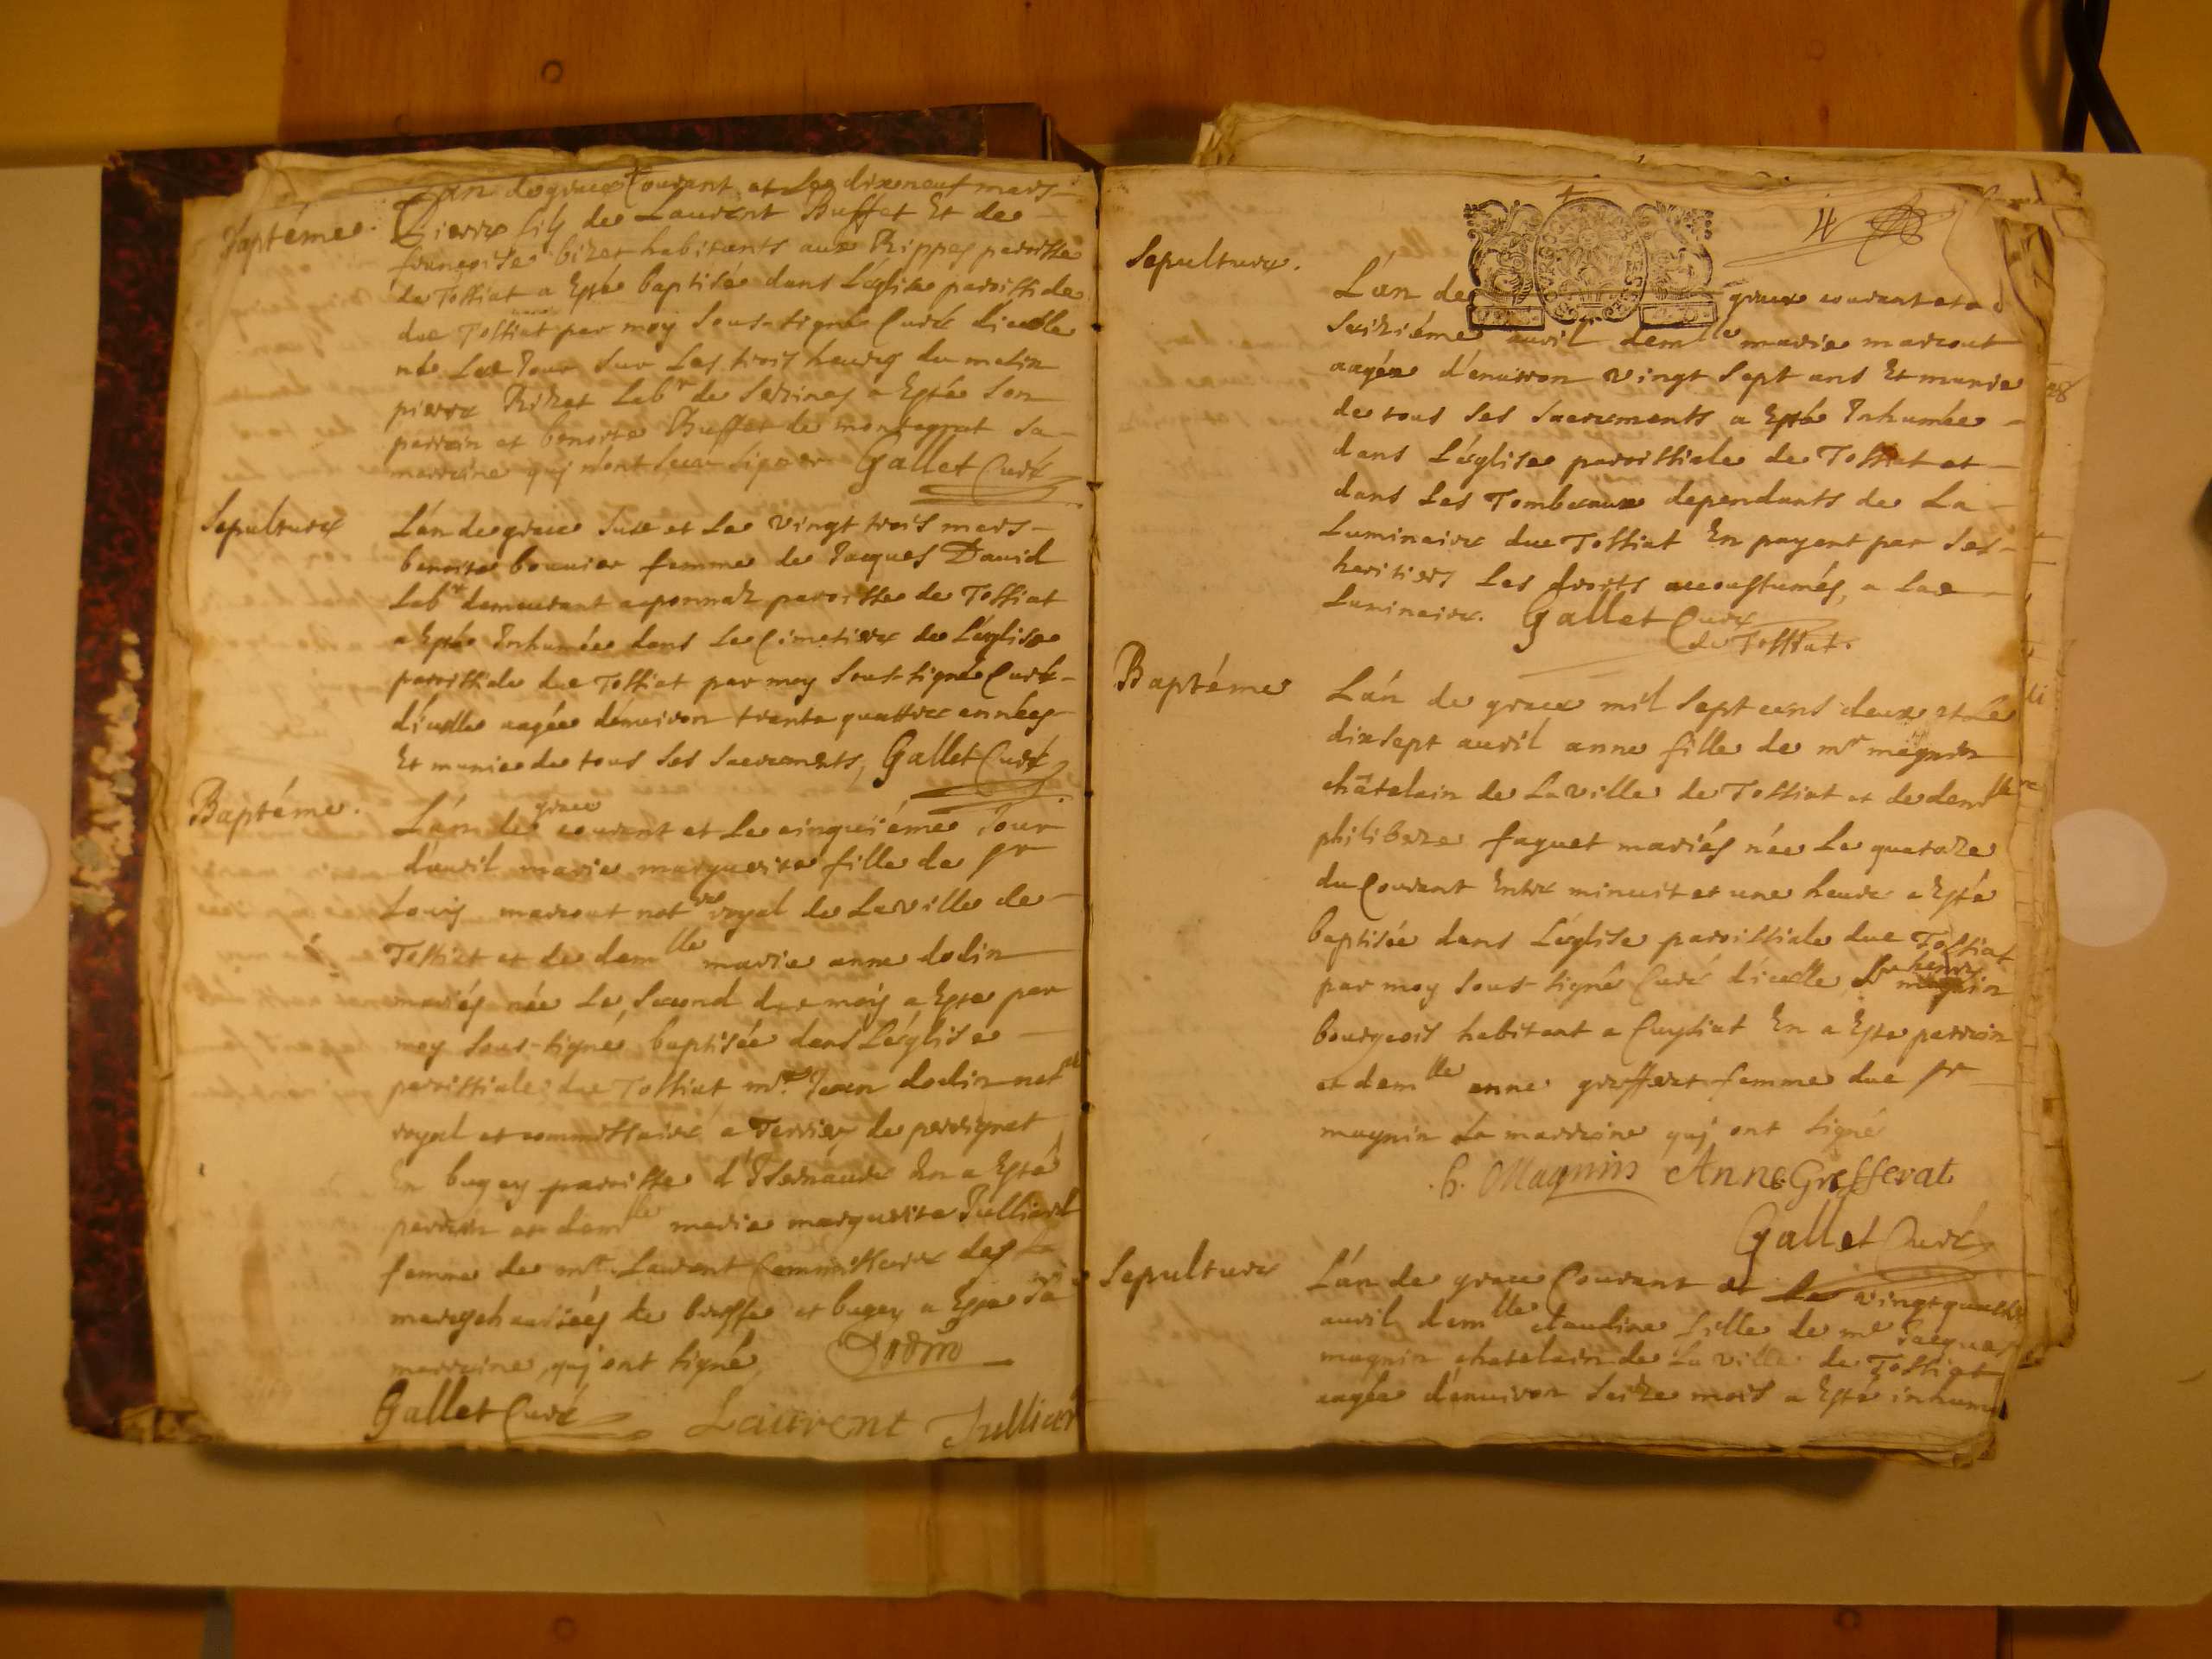 L'an de grace Courant et Le dixeneuf mars
Baptéme. Pierre fils de Laurent Buffet Et de
françoise bizet habitants aux Rippes paroisse
de Tossiat a Esté baptisée dans L'église paroissiale
due Tossiat par moy Sous-signé Curé d'icelle
né Led Jour Sur Les trois heures du matin
pierre Rizet Labr de Sezines a Esté Son
parrain et benoite Buffet de montagnat Sa
marraine quj n'ont Sceu Signer Gallet Curé
Sepulture L'an de grace Sus et Le vingt trois mars
benoite bouuier femme de Jacques David
Labr demeurant aponnaz paroisse de Tossiat
a Esté Inhumée dans Le Cimetiere de L'église
paroissiale due Tossiat par moy Sous-signé Curé
d'icelle aagée d'enuiron trante quattre années
Et munie de tous Ses Sacrements, Gallet Curé
Baptéme. L'an de grace courant et Le cinquiéme Jour
d'auril marie marguerite fille de sr
Louis marcout notre royal de La ville de
Tossiat et de demlle marie anne dodin
mariés née Le Second due mois a Esté par
moy Sous-signé baptisée dans L'église
paroissiale due Tossiat mre Jean dodin notre
royal et commissaire a Terrier de perrignat
En bugey paroisse d'Isernaure En a Esté
parrain et demlle marie marguerite Julliard
femme de mre Laurent Commissaire des
mareschaussées de bresse et bugey a Esté Sa
marraine quj ont signé, Dodin
Gallet Curé Laurent Julliard
4
Sepulture.
L'an de grace courant et a
Seiziéme auril demlle marie marcout
aagée d'enuiron vingt Sept ans Et munie
de tous Ses Sacrements a Esté Inhumée
dans L'église paroissiale de Tossiat et
dans Les Tombeaux dependants de La
Luminaire due Tossiat En payent par Ses
heritiers Les droits accoustumés, a Lae
Luminaire. Gallet Curé
de Tossiat.
Baptéme L'an de grace mil Sept cens deux et Le
dixsept auril anne fille de mr magnin
châtelain de La ville de Tossiat et de demlle
philiberte faguet mariés née Le quatorze
du Courant Entre minuit et une heure a Esté
baptisée dans L'église paroissiale due Tossiat
par moy Sous-signé Curé d'icelle Sr henry magnin
bourgeois habitant a Cuysiat En a Esté parrain
et demlle anne grefferat femme due sr
magnin La marraine quj ont signé
.h. Magnin Anne Grefferat
Gallet Curé
Sepulture L'an de grace Courant et Le vingtquattre
auril demlle claudine fille de mre Jacques
magnin chatelain de La ville de Tossiat
aagée d'enuiron Seize mois a Esté inhumé